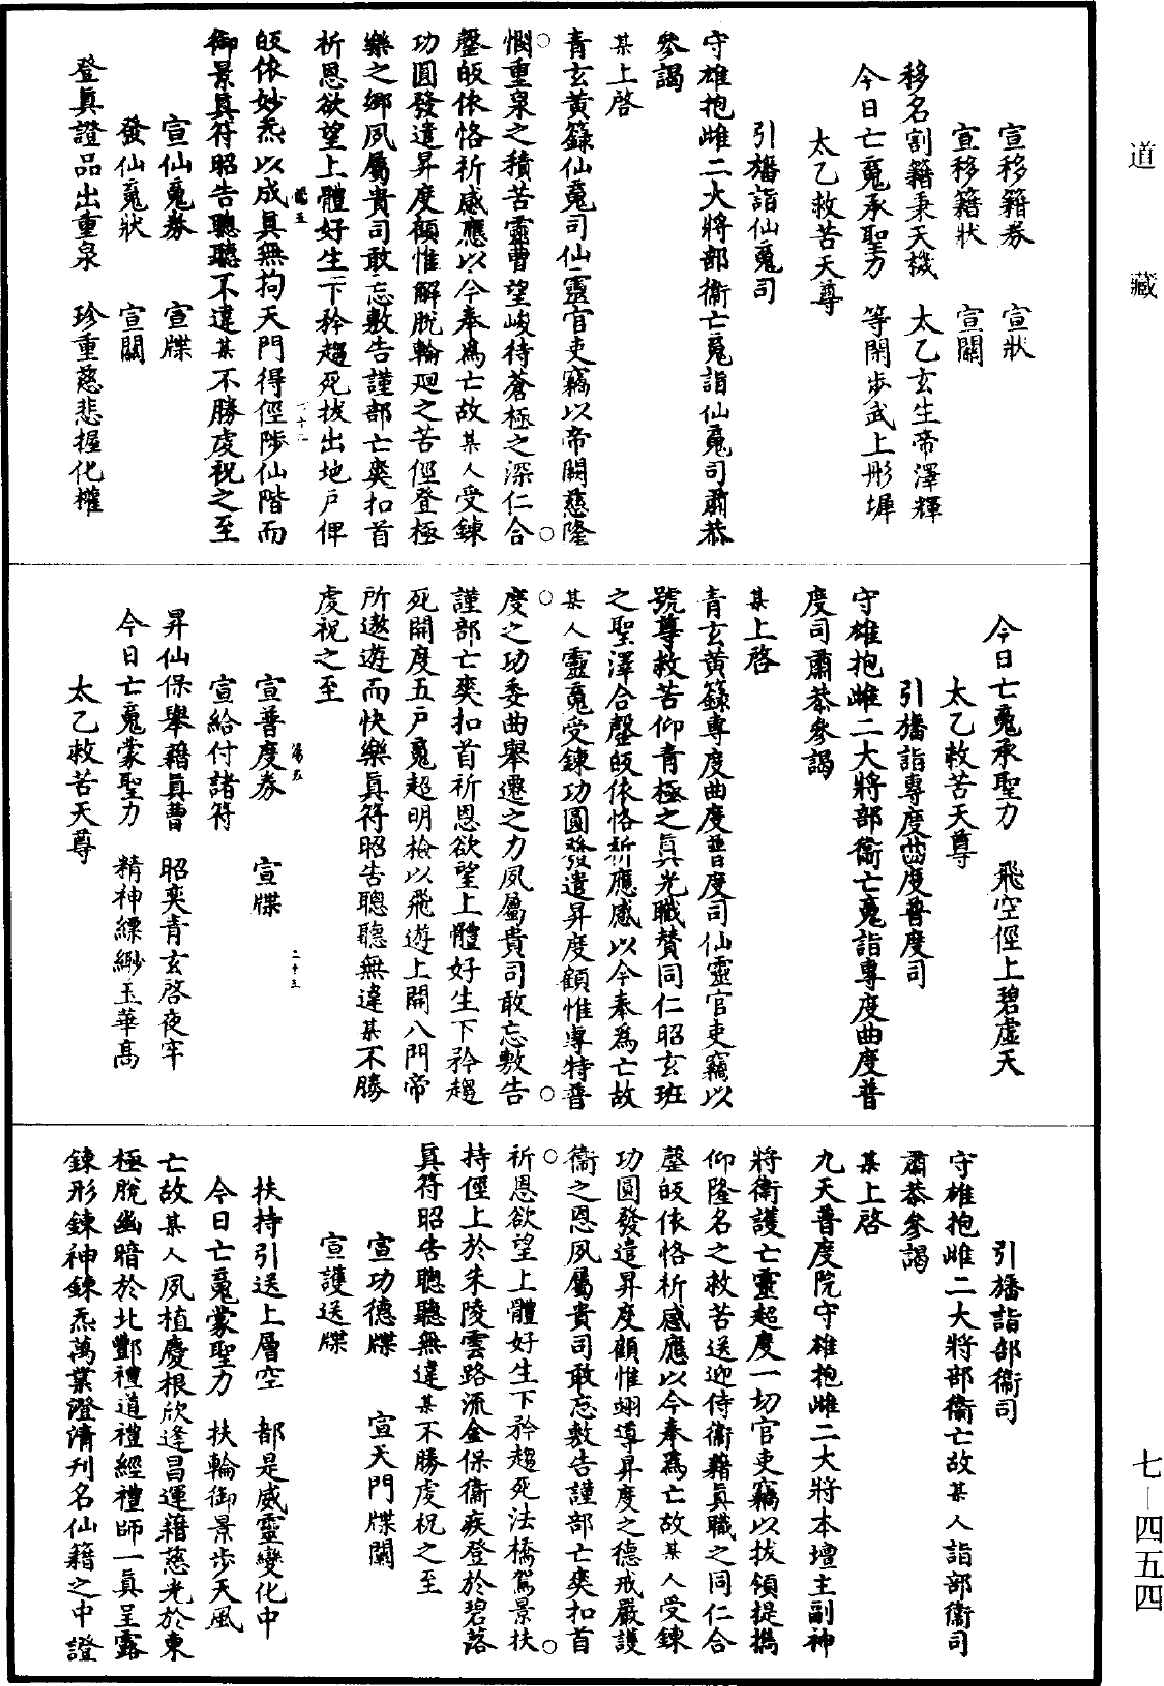 道藏
宣移籍券　宣狀
宣移籍狀　宣關
移名割籍秉天機　太乙玄生帝澤輝
今日亡䰟承聖力　等閑步武上彤墀
太乙救苦天尊
引旛詣仙䰟司
守雄抱雌二大將部衛亡䰟詣仙䰟司肅恭
參謁
某上啓
青玄黃籙仙䰟司仙靈官吏竊以帝闕慈隆
憫重泉之積苦靈曹望峻待蒼極之深仁合
罄皈依恪祈感應以今奉爲亡故某人受鍊
功圓發遣昇度顧惟解脫輪廻之苦徑登極
樂之鄉夙屬貴司敢忘敷告謹部亡爽扣首
祈恩欲望上體好生下矜趨死拔出地戶俾
皈依妙炁以成真無拘天門得徑陟仙階而
御景真符昭告聰聽不違某不勝虔祝之至
宣仙䰟券　宣牒
發仙䰟狀　宣關
登真證品出重泉　珍重慈悲握化權
今日亡䰟承聖力　飛空徑上碧虛天
太乙救苦天尊
引旛詣專度曲度普度司
守雄抱雌二大將部衛亡䰟詣專度曲度普
度司肅恭參謁
某上啓
青玄黃籙專度曲度普度司仙靈官吏竊以
號尊救苦仰青極之真光職贊同仁昭玄班
之聖澤合罄皈依恪祈應感以今奉爲亡故
某人靈䰟受鍊功圓發遣昇度顧惟專特普
度之功委曲舉遷之力夙屬貴司敢忘敷告
謹部亡爽扣首祈恩欲望上體好生下矜趨
死開度五戶䰟超明檢以飛遊上開八門帝
所遨遊而快樂真符昭告聰聽無違某不勝
虔祝之至
宣普度券　宣牒
宣給付諸符
昇仙保舉藉真曹　昭爽青玄啓夜牢
今日亡䰟蒙聖力　精神縹緲玉華高
太乙救苦天尊
引旛詣部衛司
守雄抱雌二大將部衛亡故某人詣部衛司
肅恭參謁
某上啓
九天普度院守雄抱雌二大將本壇主副神
將衛護亡靈超度一切官吏竊以拔領提攜
仰隆名之救苦送迎侍衛藉真職之同仁合
罄皈依恪祈感應以今奉爲亡故某人受鍊
功圓發遣昇度顧惟翊導昇度之德戒嚴護
衛之恩夙屬貴司敢忘敷告謹部亡爽扣首
祈恩欲望上體好生下矜趨死法橋駕景扶
持徑上於朱陵雲路流金保衛疾登於碧落
真符昭告聰聽無違某不勝虔祝之至
宣功德牒　宣天門牒關
宣護送牒
扶持引送上層空　都是威靈變化中
今日亡䰟蒙聖力　扶輪御景步天風
亡故某人夙植慶根欣逢昌運藉慈光於東
極脫幽暗於北酆禮道禮經禮師一真呈露
鍊形鍊神鍊炁萬業澄清刊名仙籍之中證
七—四五四